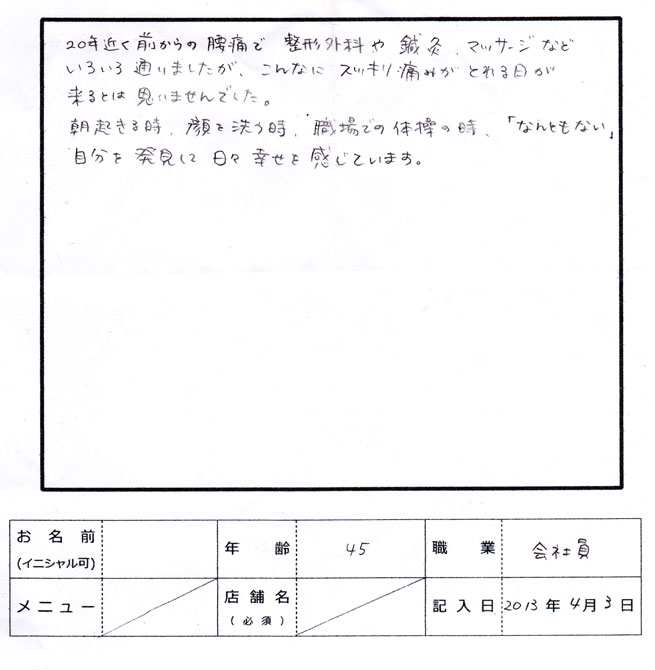 20年近く前からの腰痛で 整形外科や 鍼灸、マッサージなど
いろいろ通いましたが、こんなに スッキリ痛みが とれる日が
来るとは 思いませんでした。
朝起きる時、顔を洗う時、職場での体操の時、「なんともない」
自分を 発見して 日々幸せを 感じています。
お名前
(イニシャル可)
年齢 45
職業 会社員
メニュー
店舗名
(必須)
記入日 2013年4月3日